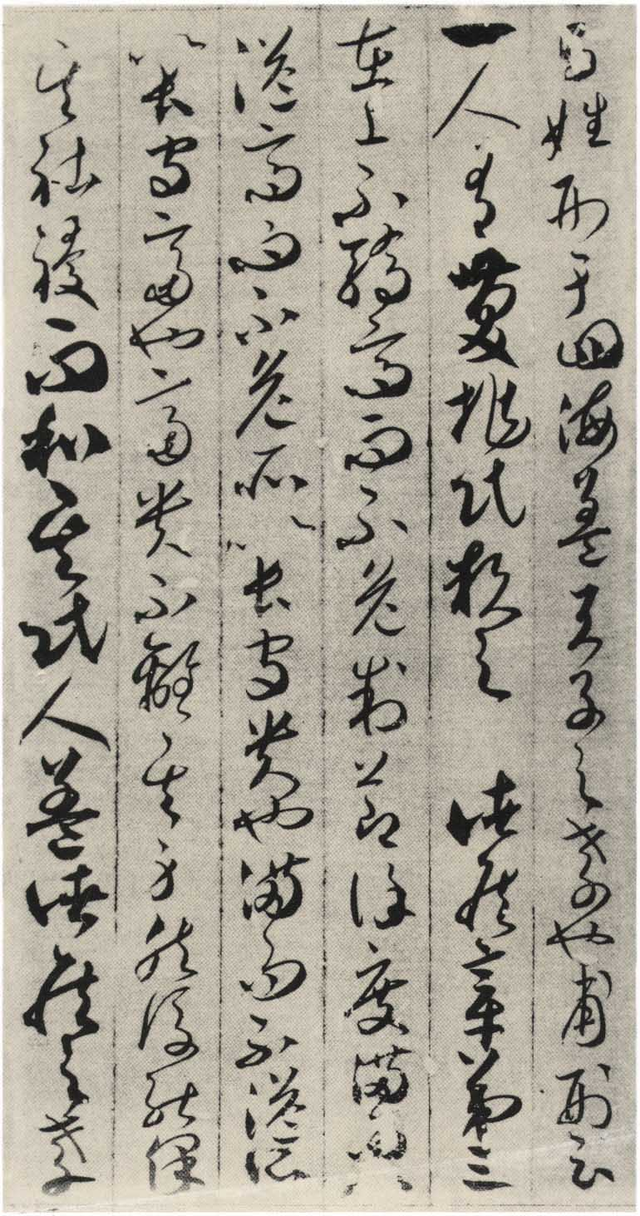 百姓刑于四海蓋天子之孝也甫刑云
一人有慶兆民賴之 諸侯章第三
在上不驕高而不危制節謹度滿而不
溢高而不危所以長守貴也滿而不溢所
以長守富也富貴不離其身然後能保
其社稷而和其民人蓋諸侯之孝